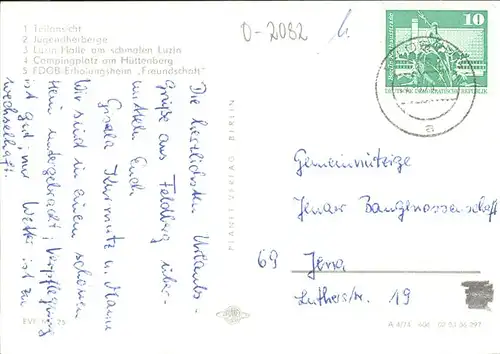 1 Teilansicht
2 Jugendherberge
3 Luzin Halle am schmalen Luzin
4 Campingplatz am Hüttenberg
5 FDGB-Erholungsheim „Freundschaft"
0-2082
10
DEUTSCHE DEMOKRATISCHE REPUBLIK
a
Die herzlichsten Urlaubs-
grüße aus Feldberg über-
mitteln Euch
Gisela
Wir sind in einem schönen
Heim untergebracht, Verpflegung
ist gut, nur Wetter ist zu
wechselhaft.
PLANET-VERLAG BERLIN
Gemeinnützige
Jenaer Baugenossenschaft
69 Jena
Lutherstr. 19
A 4/74